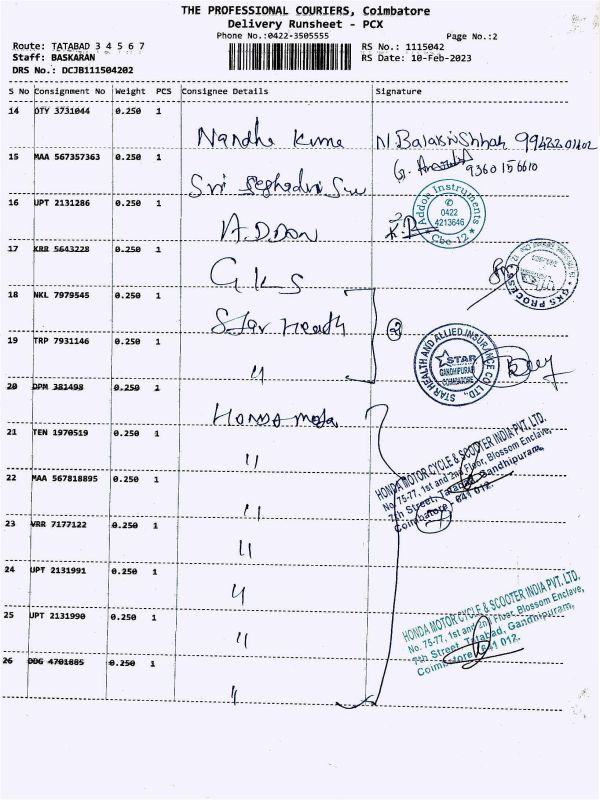 THE PROFESSIONAL COURIERS, Coimbatore
Delivery Runsheet - PCX
Phone No.:0422-3505555 Page No.:2
Route: TATABAD 3 4 5 6 7 RS No.: 1115042
Staff: BASKARAN RS Date: 10-Feb-2023
DRS No.: DCJB111504202
S No Consignment No Weight PCS Consignee Details Signature
14 OTY 3731044 0.250 1
Nandha Kuma N. Balakrishnan 9942201402
15 MAA 567357363 0.250 1
9360156610
Sri
16 UPT 2131286 0.250 1
ADDON
Addon Instruments
0422
4213646
Cbe-12
17 KRR 5643228 0.250 1
GKS
GKS PROCESS
18 NKL 7979545 0.250 1
Star Heath
2
19 TRP 7931146 0.250 1
"
STAR HEALTH AND ALLIED INSURANCE CO. LTD.,
STAR
GANDHIPURAM
COIMBATORE
20 DPM 381498 0.250 1
HONDA mota
21 TEN 1970519 0.250 1
"
HONDA MOTOR CYCLE & SCOOTER INDIA PVT. LTD.
No. 75-77, 1st and 2nd Floor, Blossom Enclave,
7th Street, Tatabad, Gandhipuram,
Coimbatore - 641 012.
22 MAA 567818895 0.250 1
"
23 VRR 7177122 0.250 1
"
24 UPT 2131991 0.250 1
"
25 UPT 2131990 0.250 1
"
HONDA MOTOR CYCLE & SCOOTER INDIA PVT. LTD.
No. 75-77, 1st and 2nd Floor Blossom Enclave,
7th Street, Tatabad, Gandhipuram,
Coimbatore - 641 012.
26 DDG 4701885 0.250 1
"